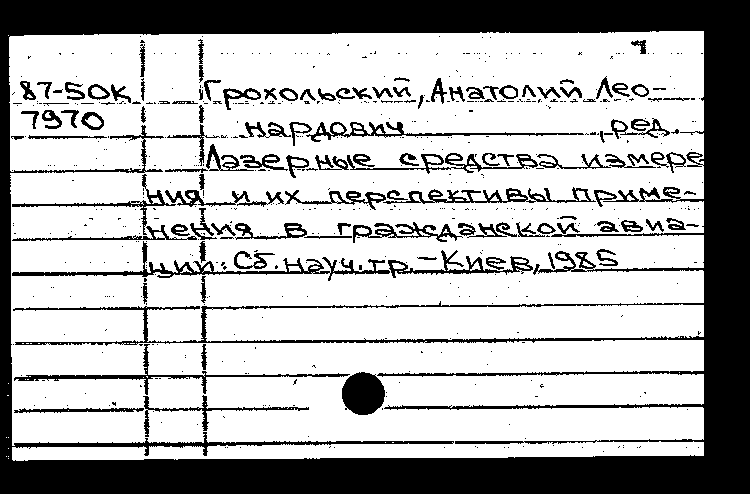 87-5OK Грохольский, Анатолий Лео-
7970 нардович , ред.
Лазерные средства измере
ния и их перспективы приме-
нения в гражданской авиа-
ции: Сб. науч. тр. – Киев, 1985